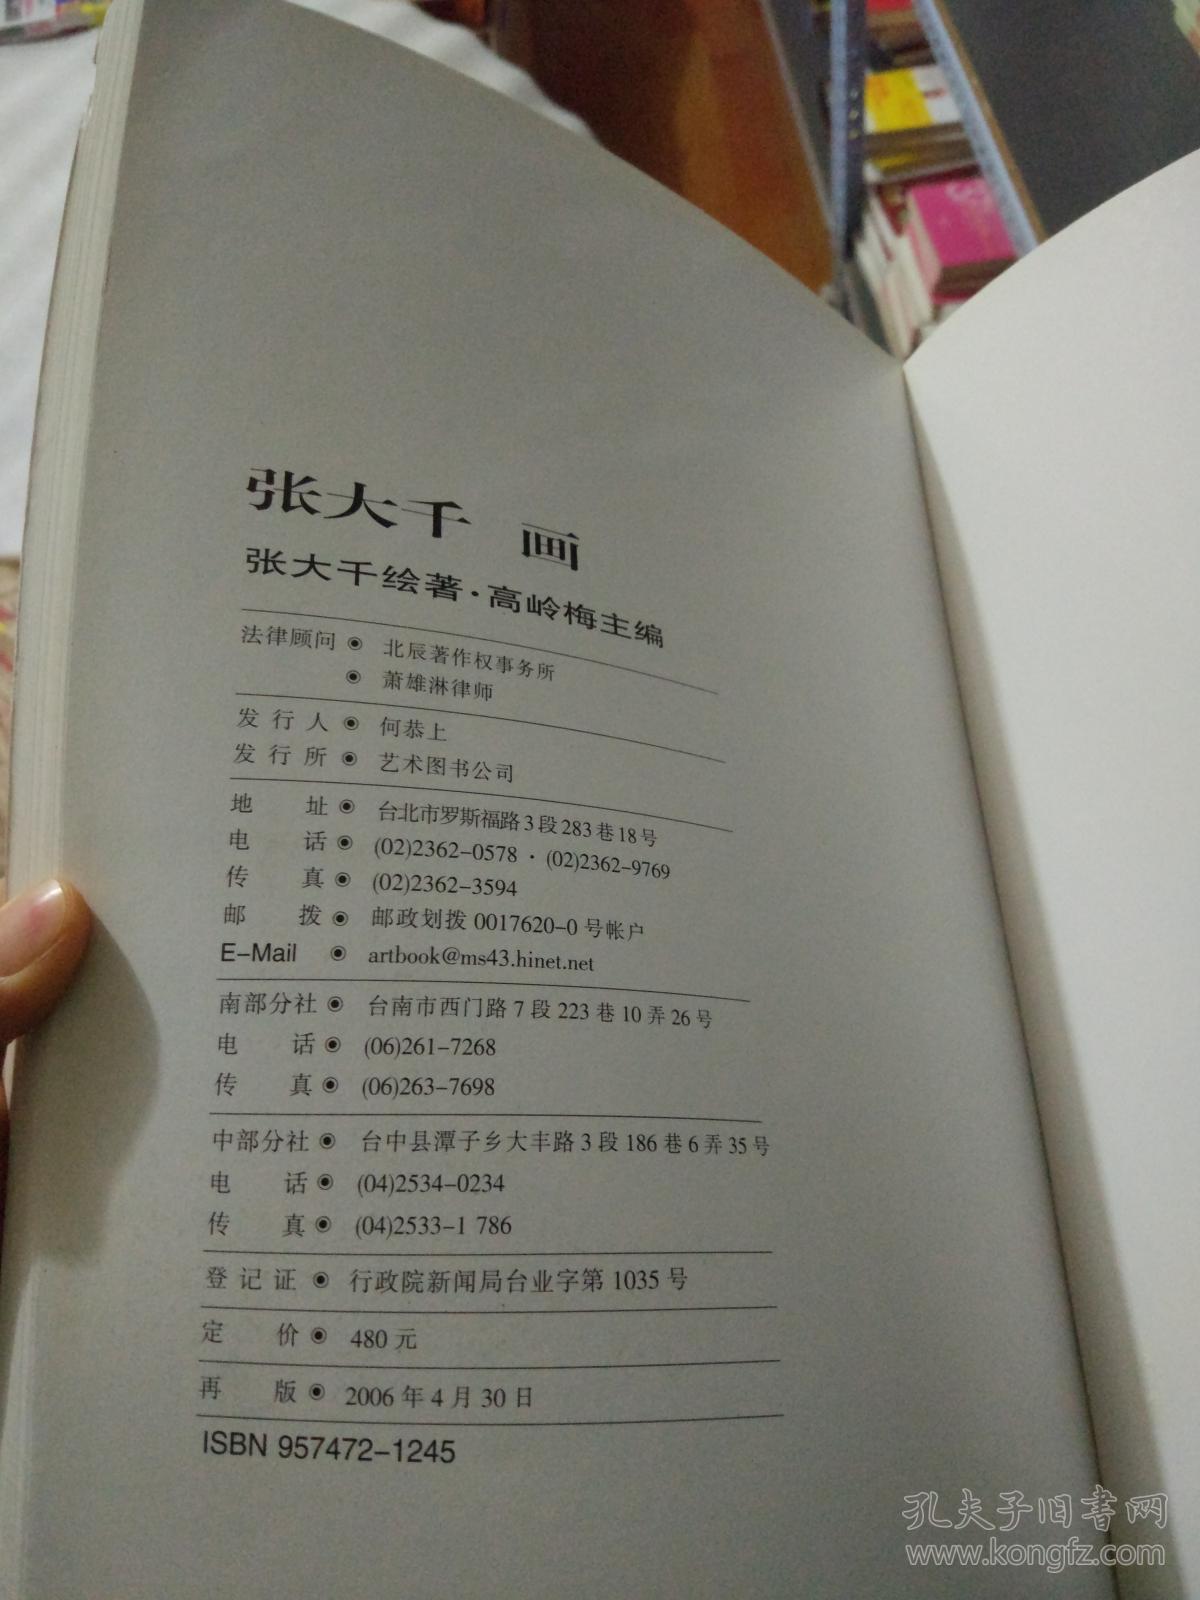 张大千 画
张大千绘著·高岭梅主编
法律顾问 ◉ 北辰著作权事务所
◉ 萧雄淋律师
发行人 ◉ 何恭上
发行所 ◉ 艺术图书公司
地 址 ◉ 台北市罗斯福路3段283巷18号
电 话 ◉ (02)2362-0578·(02)2362-9769
传 真 ◉ (02)2362-3594
邮 拨 ◉ 邮政划拨 0017620-0 号帐户
E-Mail ◉ artbook@ms43.hinet.net
南部分社 ◉ 台南市西门路7段223巷10弄26号
电 话 ◉ (06)261-7268
传 真 ◉ (06)263-7698
中部分社 ◉ 台中县潭子乡大丰路3段186巷6弄35号
电 话 ◉ (04)2534-0234
传 真 ◉ (04)2533-1 786
登记证 ◉ 行政院新闻局台业字第1035号
定 价 ◉ 480元
再 版 ◉ 2006年4月30日
ISBN 957472-1245
孔夫子旧书网
www.kongfz.com